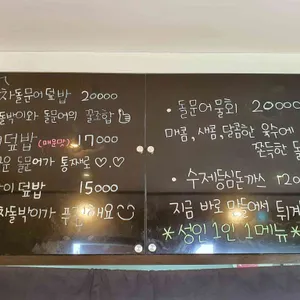 차돌문어덮밥 20000
돌박이와 돌문어의 꿀조합
덮밥 (매운맛) 17000
운 돌문어가 통째로 ♡.♡
이 덮밥 15000
차돌박이가
• 돌문어물회 20000
매콤, 새콤, 달콤한 육수에
쫀득한 돌
• 수제등심돈까스 12000
지금 바로 만들어서 튀겨
*성인 1인 1메뉴*